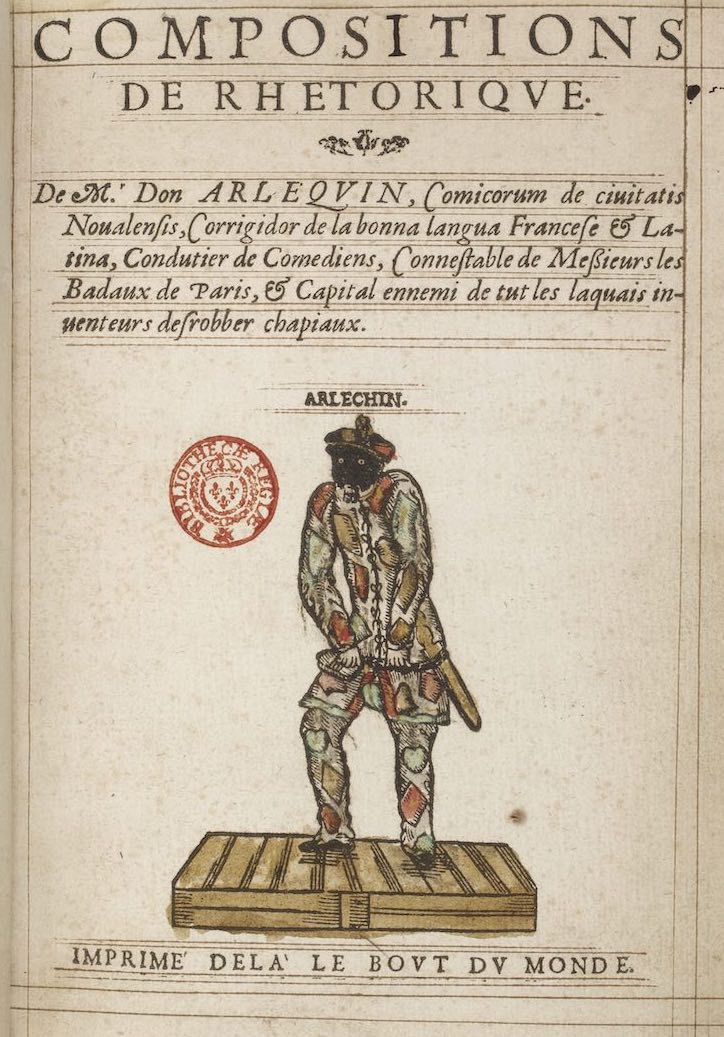 COMPOSITIONS
DE RHETORIQVE.
De M.ʳ Don ARLEQVIN, Comicorum de ciuitatis
Noualenſis, Corrigidor de la bonna langua Franceſe & La-
tina, Condutier de Comediens, Conneſtable de Meßieurs les
Badaux de Paris, & Capital ennemi de tut les laquais in-
uenteurs deſrobber chapiaux.
ARLECHIN.
BIBLIOTHECÆ REGIÆ
IMPRIME' DELA' LE BOVT DV MONDE.